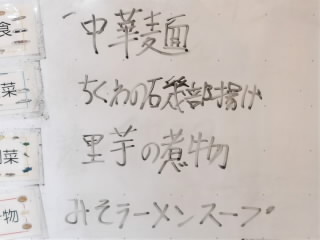 食
中華麺
菜
ちくわの石磯部揚げ
菜
里芋の煮物
物
みそラーメンスープ